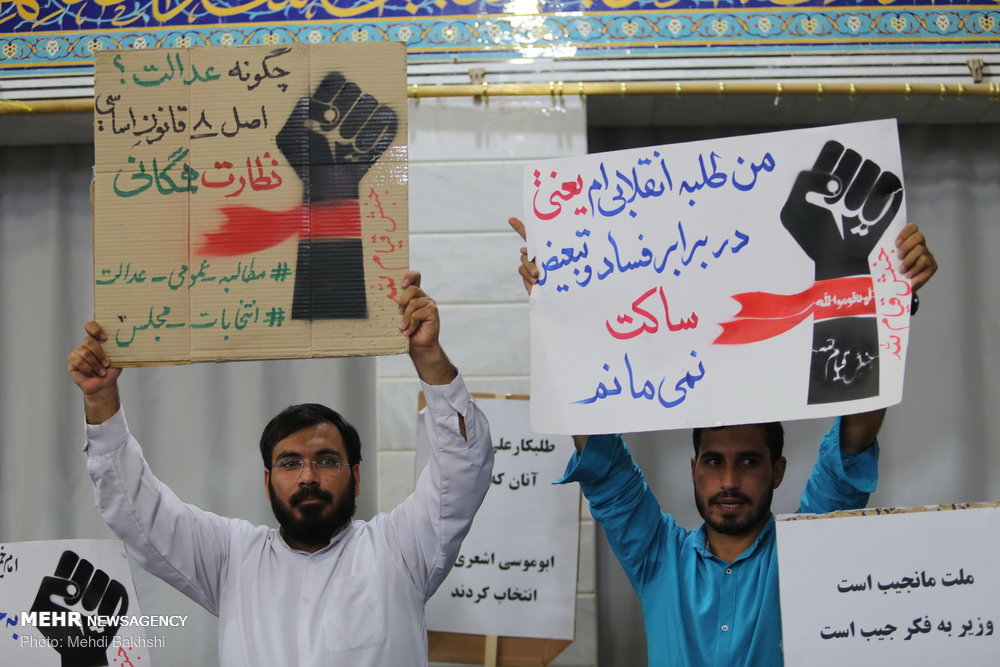 چگونه عدالت؟
اصل ۸ قانون اساسی
نظارت همگانی
#مطالبه_عمومی_عدالت
#انتخابات_مجلس
من طلبه انقلابی‌ام یعنی
در برابر فساد و تبعیض
ساکت
نمی‌مانم
جنبش قیام لله
طلبکار علی
آنان که
ابوموسی اشعری
انتخاب کردند
ملت مانجیب است
وزیر به فکر جیب است
MEHR NEWSAGENCY
Photo: Mehdi Bakhshi